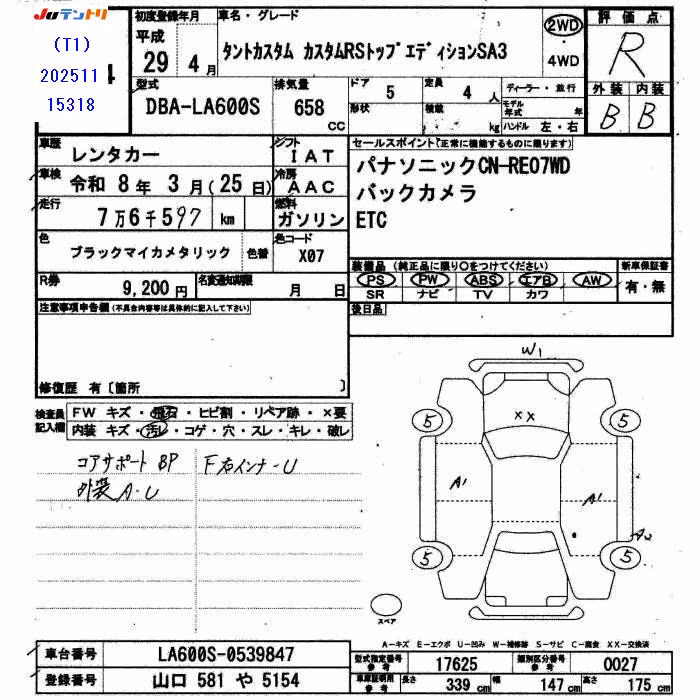 JUテントリ
(T1)
202511
15318
4
初度登録年月
平成
29 4月
車名・グレード
タントカスタム カスタムRSトップエディションSA3
2WD
・
4WD
評価点
R
型式
DBA-LA600S
排気量
658
CC
ドア 5
形状
定員 4 人
積載 kg
ディーラー・並行
モデル年式 年
ハンドル 左・右
外装 内装
B B
車歴
レンタカー
シフト
IAT
車検
令和 8年 3月(25日)
冷房
AAC
走行
7万6千597 km
燃料
ガソリン
色
ブラックマイカメタリック
色替
色コード
X07
R券
9,200円
名変通知期限
月 日
セールスポイント(正常に機能するものに限ります)
パナソニックCN-RE07WD
バックカメラ
ETC
装備品(純正品に限り○をつけてください)
新車保証書
PS PW ABS エアB AW
SR ナビ TV カワ
有・無
後日品
注意事項申告欄(不具合内容等は具体的に記入して下さい)
修復歴 有〔箇所 〕
検査員記入欄
FW キズ・飛石・ヒビ割・リペア跡・×要
内装 キズ・汚レ・コゲ・穴・スレ・キレ・破レ
コアサポート BP
F右インナーU
外装A・U
W1
XX
5
5
A1
A1
A2
5
5
スペア
A-キズ E-エクボ U-凹み W-補修跡 S-サビ C-腐食 XX-交換済
車台番号
LA600S-0539847
登録番号
山口 581 や 5154
型式指定番号
参考
17625
類別区分番号
参考
0027
車庫証明用
参考
長さ 339 cm
幅 147 cm
高さ 175 cm